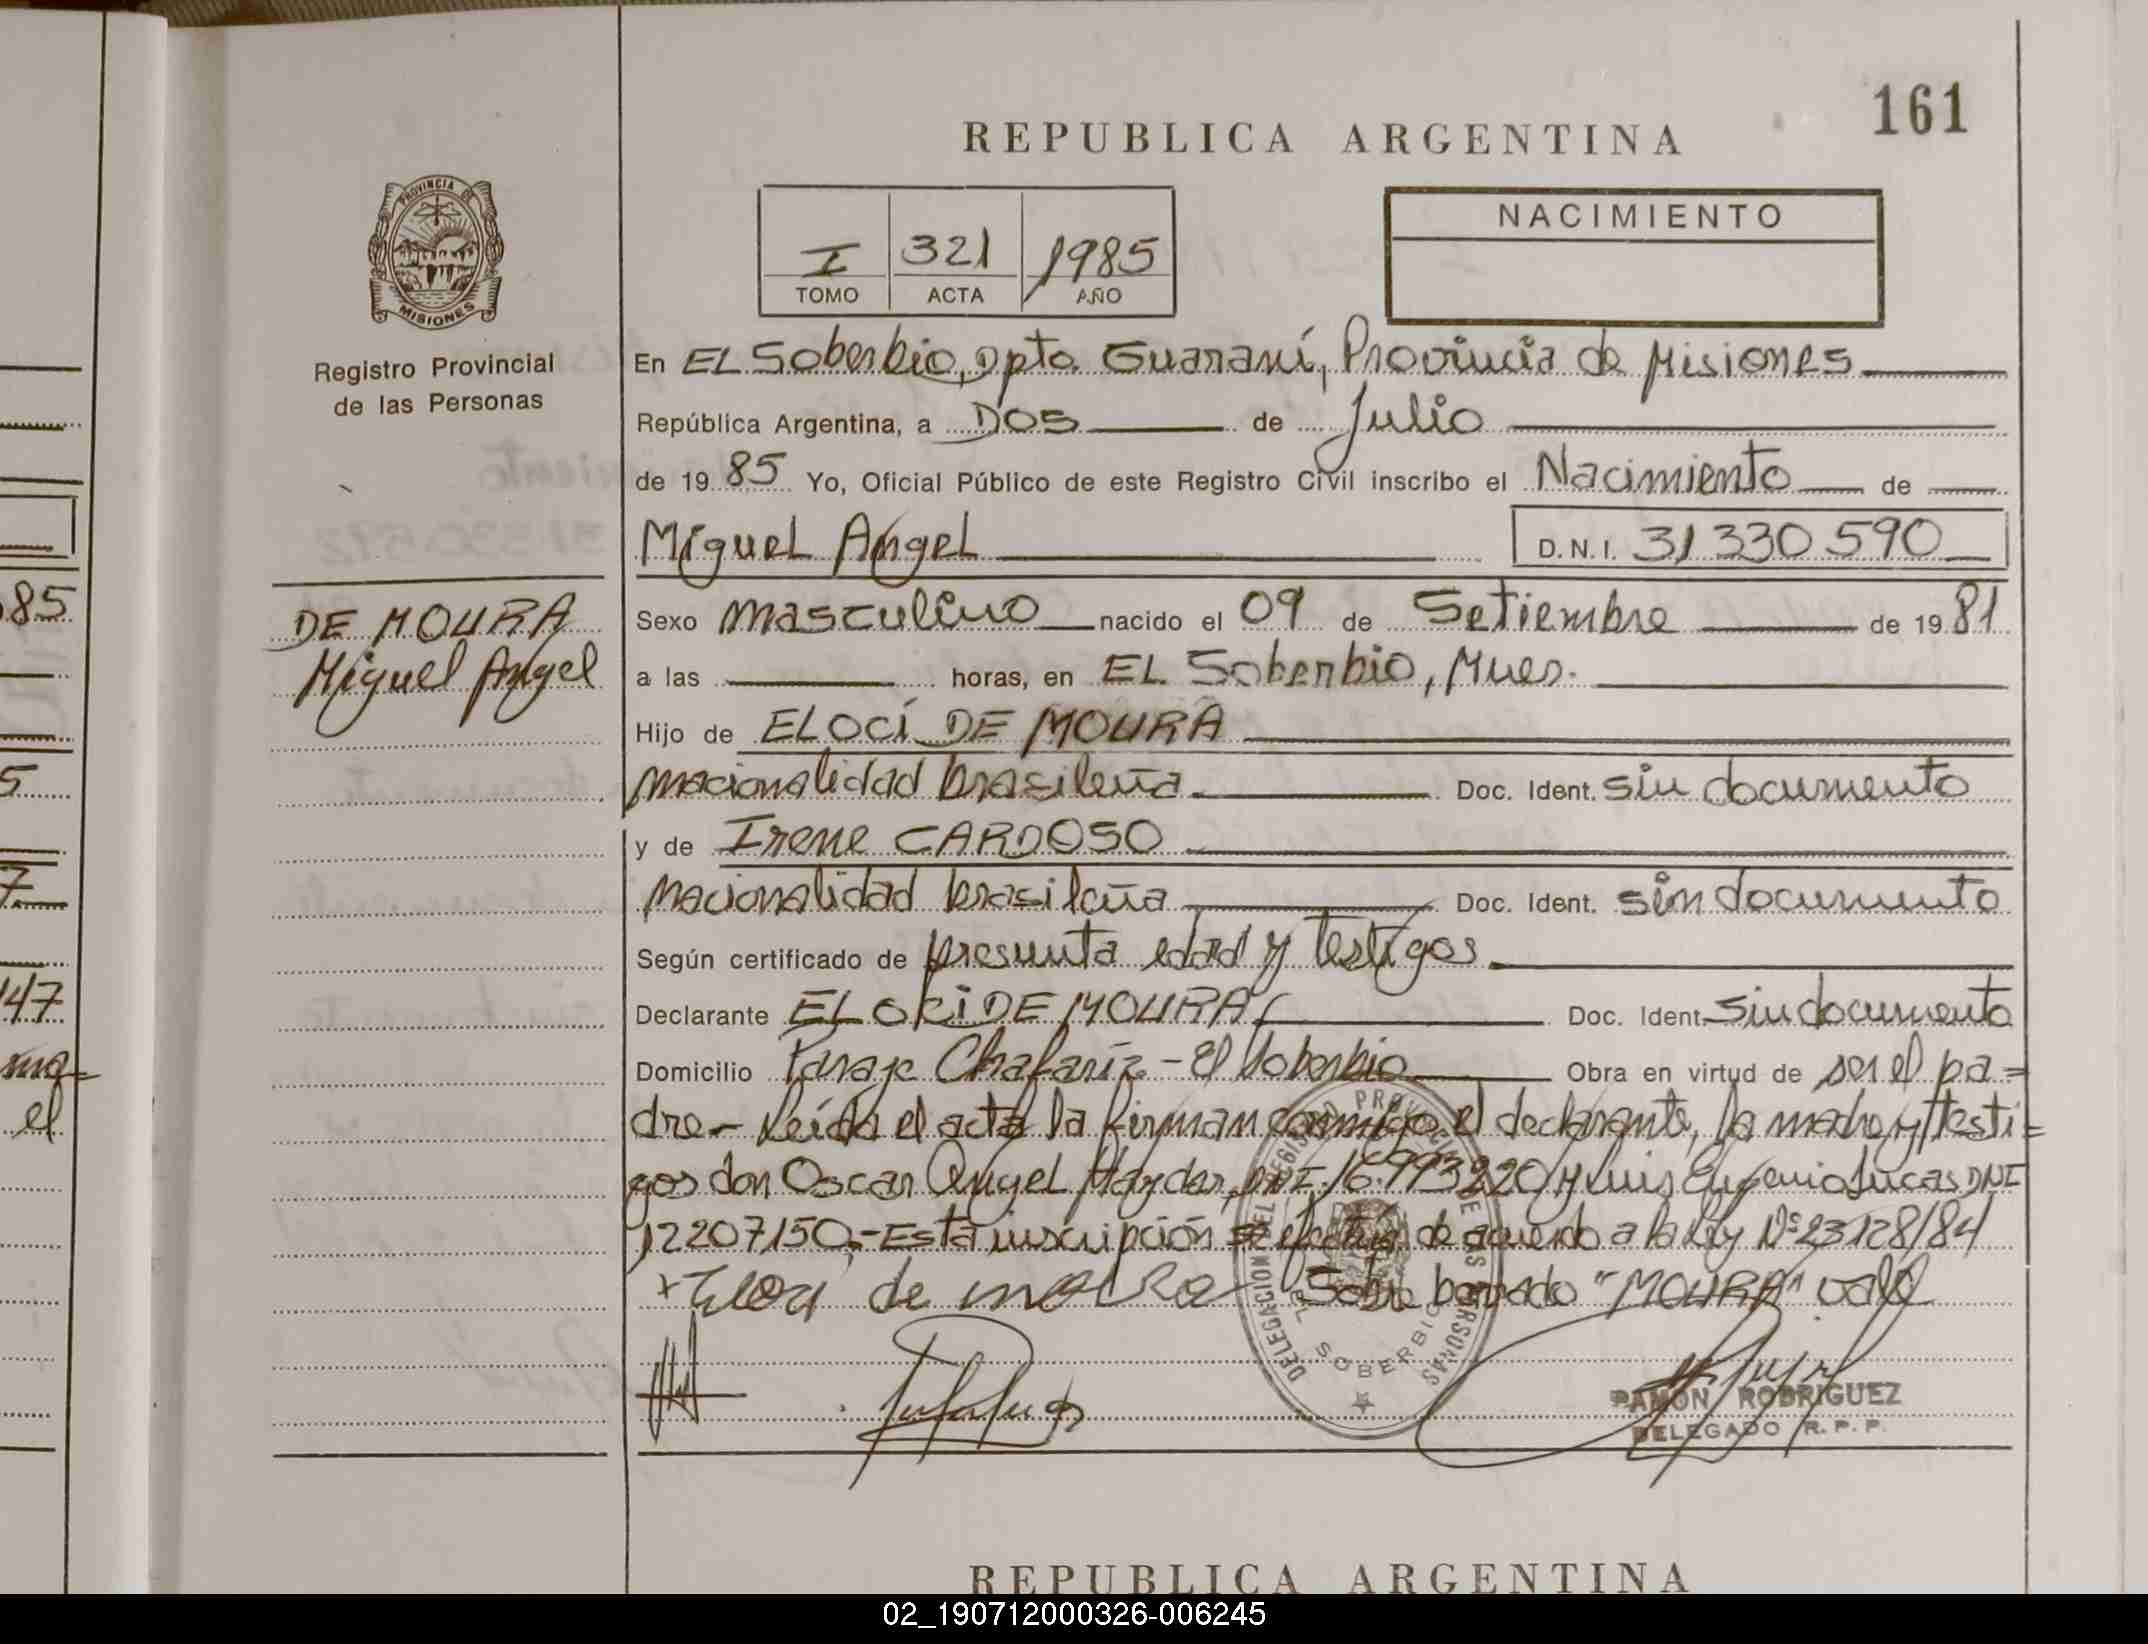 161
REPUBLICA ARGENTINA
PROVINCIA DE
MISIONES
Registro Provincial
de las Personas
I 321 1985
TOMO ACTA AÑO
NACIMIENTO
En EL Soberbio, Dpto. Guaraní, Provincia de Misiones
República Argentina, a DOS de Julio
de 19 85 Yo, Oficial Público de este Registro Civil inscribo el Nacimiento de
Miguel Angel D.N.I. 31 330 590
DE MOURA
Miguel Angel
Sexo masculino nacido el 09 de Setiembre de 19 81
a las horas, en EL Soberbio, Mnes.
Hijo de ELOCÍ DE MOURA
nacionalidad brasileña Doc. Ident. sin documento
y de Irene CARDOSO
nacionalidad brasileña Doc. Ident. sin documento
Según certificado de presunta edad y testigos
Declarante ELOKI DE MOURA Doc. Ident. Sin documento
Domicilio Paraje Chafaríz - El Soberbio Obra en virtud de ser el pa=
dre - Leída el acta la firman conmigo el declarante, la madre y testi=
gos don Oscar Angel DNI. 16.993220 y Luis Eugenio Lucas DNI
12207150.- Esta inscripción se efectúa de acuerdo a la Ley Nº 23128/84
+ Eloci de Sobre borrado "MOURA" vale
DELEGACION DEL REGISTRO PROVINCIAL DE LAS PERSONAS
EL SOBERBIO
RAMON RODRIGUEZ
DELEGADO R. P. P.
REPUBLICA ARGENTINA
85
5
7
147
el
02_190712000326-006245